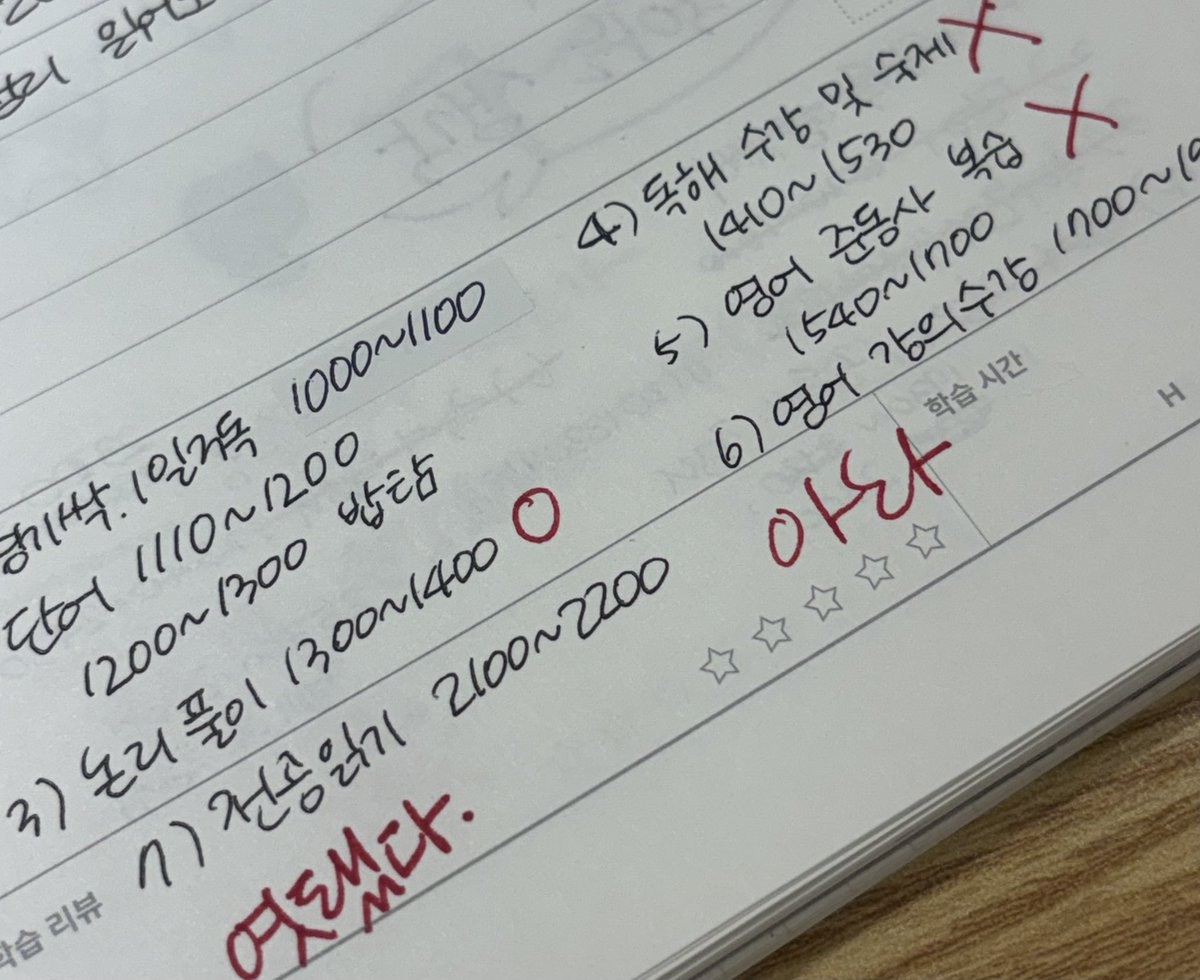 단어 1110~1200
1200~1300 밥탐
3) 논리 풀이 1300~1400 O
4) 독해 수강 및 숙제 X
1410~1530
5) 영어 준동사 복습 X
1540~1700
6) 영어 강의수강 1700~
7) 전공읽기 2100~2200
1일1독 1000~1100
아놔
학습 시간
H
학습 리뷰
엿됐다.